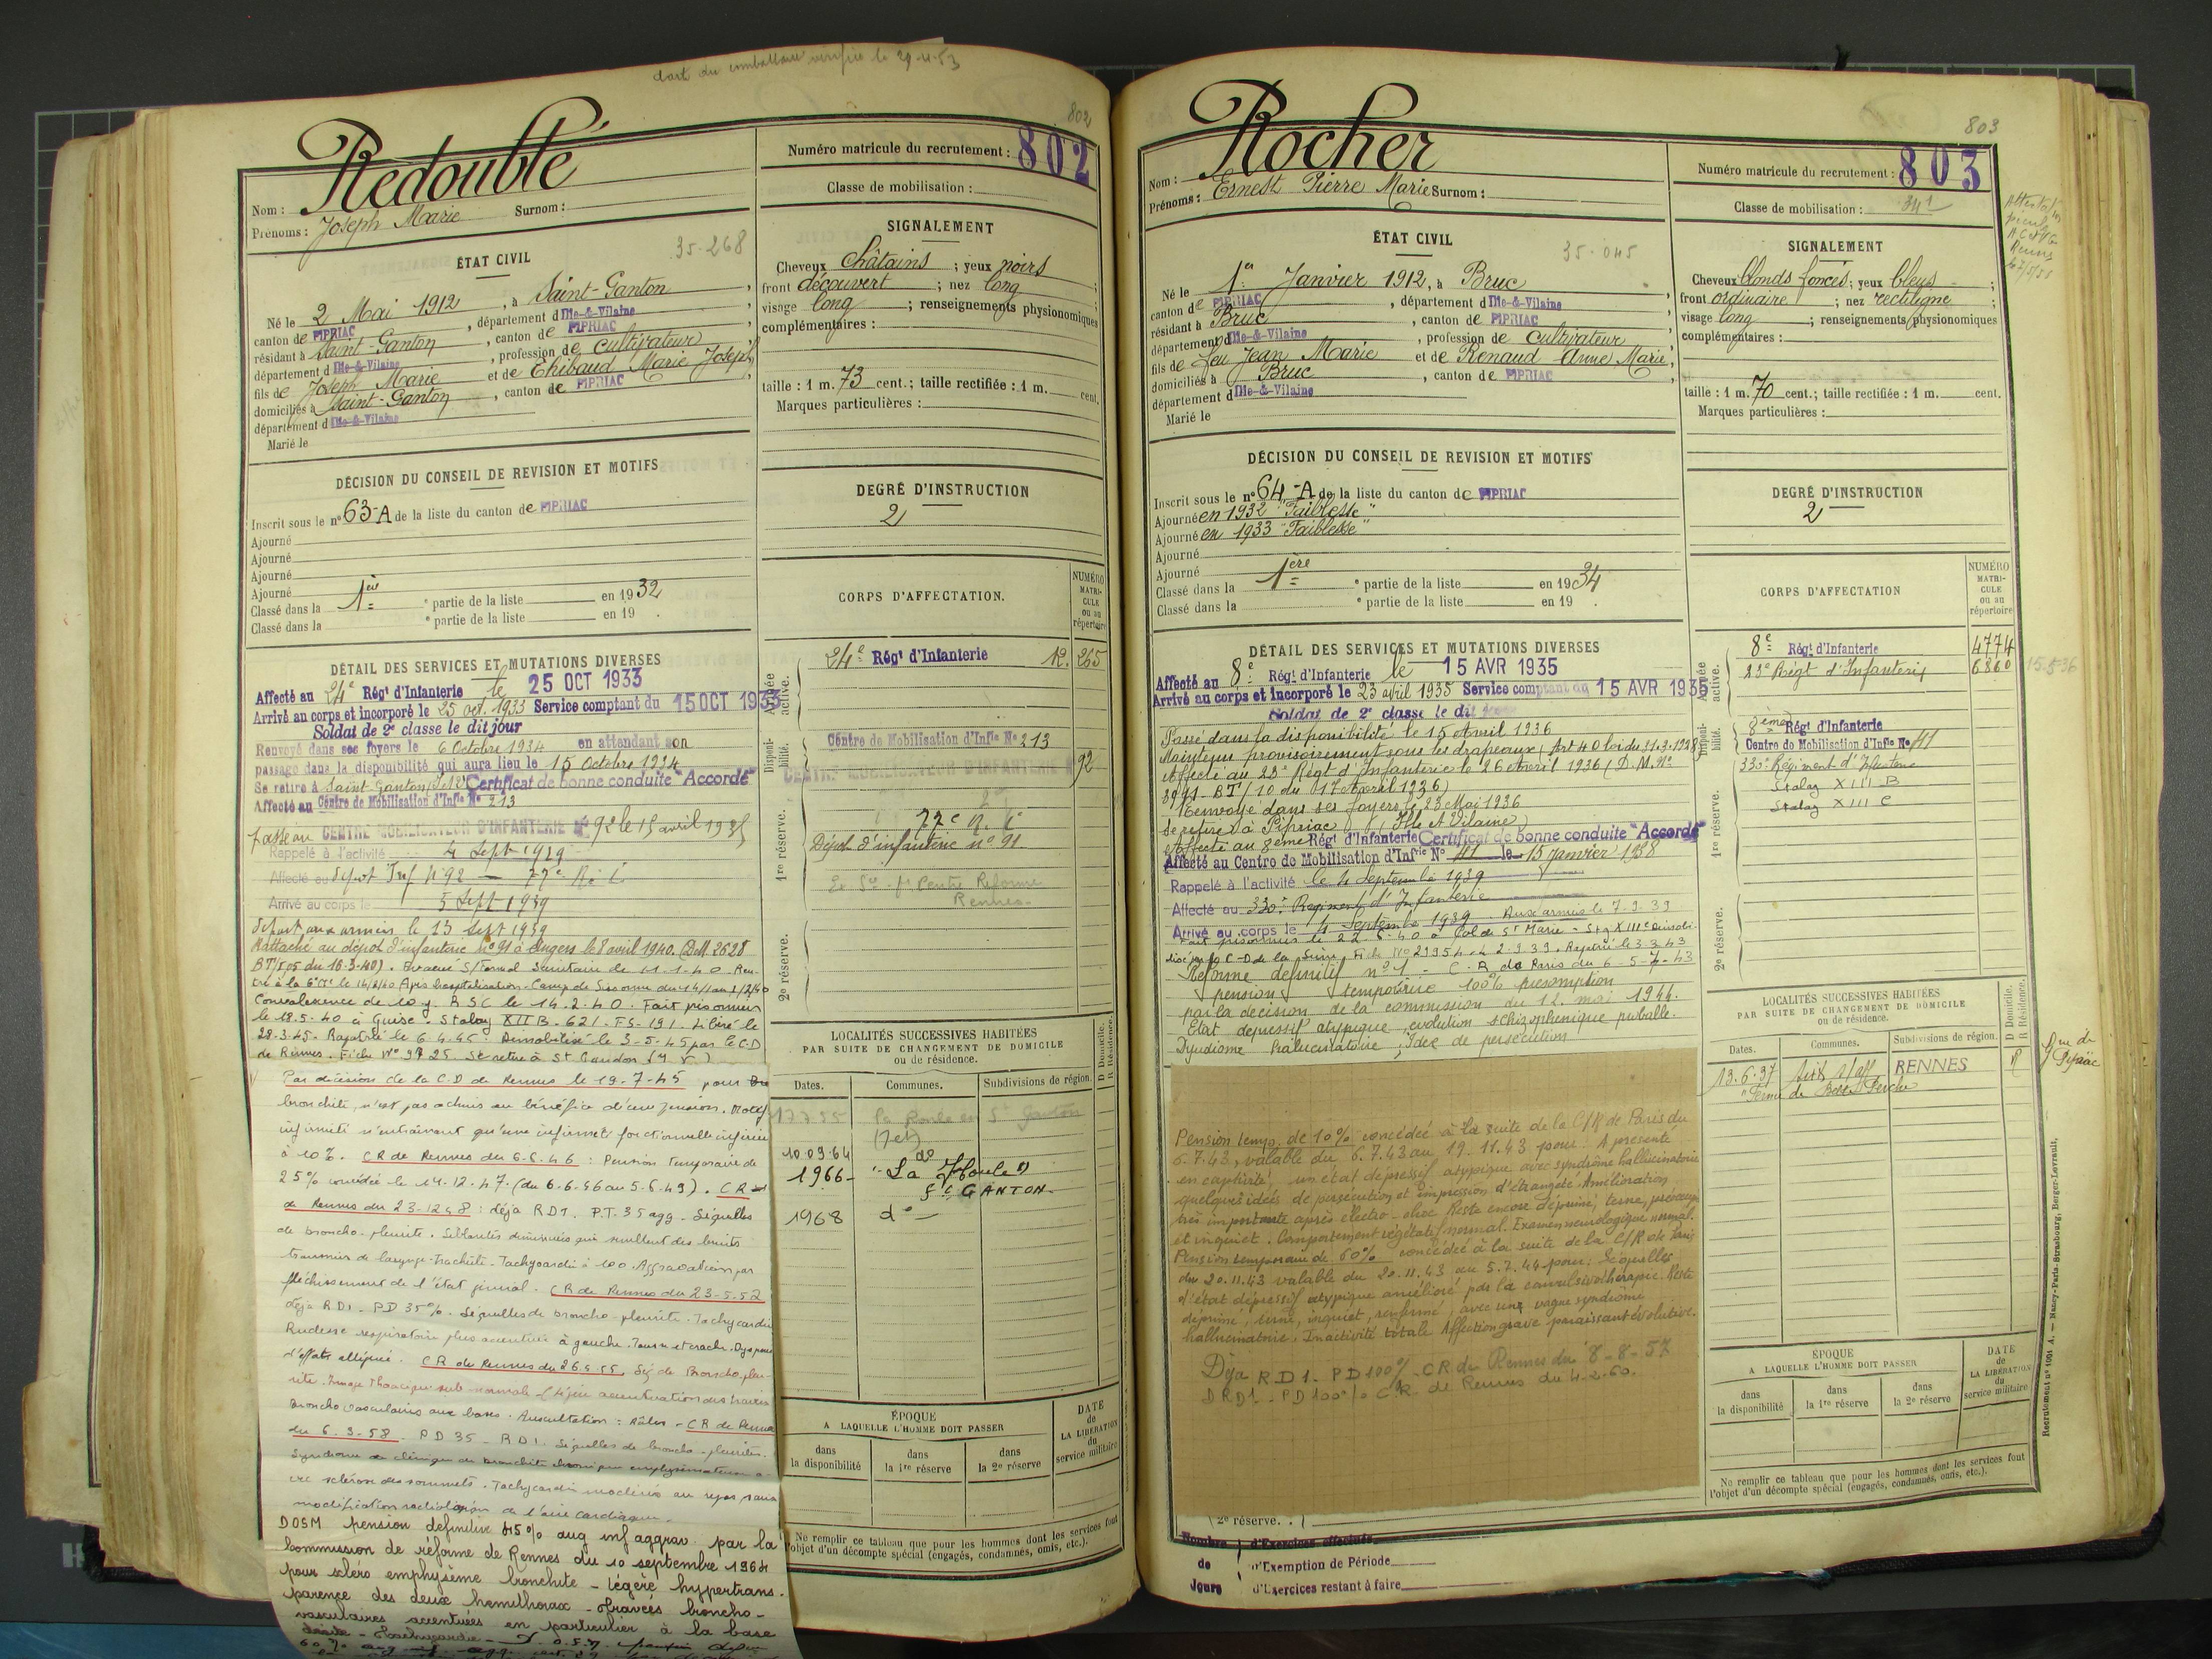 carte du combattant vérifiée le 29-4-53
802
Redoublé
Nom :
Prénoms : Joseph Marie Surnom :
Numéro matricule du recrutement : 802
Classe de mobilisation :
ÉTAT CIVIL
35.268
Né le 2 Mai 1912, à Saint-Ganton,
canton de PIPRIAC, département d Ille-&-Vilaine
résidant à Saint-Ganton, canton de PIPRIAC
département d Ille-&-Vilaine, profession de cultivateur
fils de Joseph Marie et de Thibaud Marie Joseph
domiciliés à Saint-Ganton, canton de PIPRIAC
département d Ille-&-Vilaine
Marié le
SIGNALEMENT
Cheveux châtains ; yeux noirs
front découvert ; nez long ;
visage long ; renseignements physionomiques
complémentaires :
taille : 1 m. 73 cent. ; taille rectifiée : 1 m. cent.
Marques particulières :
DÉCISION DU CONSEIL DE REVISION ET MOTIFS
Inscrit sous le n° 63-A de la liste du canton de PIPRIAC
Ajourné
Ajourné
Ajourné
Ajourné
Classé dans la 1ère e partie de la liste en 1932
Classé dans la e partie de la liste en 19 .
DEGRÉ D'INSTRUCTION
2
CORPS D'AFFECTATION.
NUMÉRO
MATRI-
CULE
ou au
répertoire
Armée active.
24e Régt d'Infanterie 12.265
Disponi-
bilité.
Centre de Mobilisation d'Infie No 213
CENTRE MOBILISATEUR D'INFANTERIE N° 92
1re réserve.
77e R.I.
Dépot d'infanterie n° 91
Centre Réforme
Rennes
2e réserve.
DÉTAIL DES SERVICES ET MUTATIONS DIVERSES
Affecté au 24e Régt d'Infanterie le 25 OCT 1933
Arrivé au corps et incorporé le 25 oct. 1933 Service comptant du 15 OCT 1933
Soldat de 2e classe le dit jour
Renvoyé dans ses foyers le 6 Octobre 1934 en attendant son
passage dans la disponibilité qui aura lieu le 15 Octobre 1934
Se retire à Saint-Ganton (I&V) Certificat de bonne conduite "Accordé"
Affecté au Centre de Mobilisation d'Infie No 213
Passé au CENTRE MOBILISATEUR D'INFANTERIE N° 92 le 15 avril 1935
Rappelé à l'activité 4 Sept 1939
Affecté au Dépot Inf N°92 — 77e R.I.
Arrivé au corps le 5 Sept 1939
Départ aux armées le 13 Sept 1939
Rattaché au dépot d'infanterie n°91 à Angers le 8 avril 1940. (D.M. 2628
BT/I.05 du 16-3-40).
Convalescence de 10 j. R S C le 14.2.40. Fait prisonnier
le 18.5.40 à Guise. Stalag XII B. 621. FS-191. Libéré le
28.3.45. Rapatrié le 6.4.45. Démobilisé le 3-5-45 par le C.D
de Rennes.
Par décision de la C.D de Rennes le 19-7-45 pour
bronchite, n'est pas admis au bénéfice d'une pension. Motif
infirmité n'entraînant qu'une infirmité fonctionnelle inférieure
à 10%. CR de Rennes du 6.6.46 : Pension temporaire de
25% concédée le 14.12.47. (du 6.6.46 au 5.6.49). CR
de Rennes du 23-12-48 : déja RD1. P.T. 35 agg. Séquelles
de broncho-pleurite.
Tachycardie à 100. Aggravation par
fléchissement de l'état général. CR de Rennes du 23-5-52
déja RD1. PD 35%. Séquelles de broncho-pleurite. Tachycardie
Rudesse respiratoire plus accentuée à gauche. Tousse et crache. Dyspnée
d'effort alléguée. CR de Rennes du 26.5.55. Séq de Broncho pleu-
rite. Image Thoracique sub-normale (légère accentuation des travées
broncho vasculaires aux bases. Auscultation : Râles - CR de Rennes
du 6-3-58. PD 35 - RD1. Séquelles de broncho-pleurites.
Syndrome clinique de bronchite chronique emphysémateuse
sclérose des sommets. Tachycardie modérée au repos sans
modification radiologique de l'aire cardiaque.
DOSM pension définitive 45% aug inf aggrav. par la
Commission de réforme de Rennes du 10 septembre 1964
pour scléro emphysème bronchite - légère hypertrans-
parence des deux hemithorax - Travées broncho-
vasculaires accentuées en particulier à la base
droite - Tachycardie
LOCALITÉS SUCCESSIVES HABITÉES
PAR SUITE DE CHANGEMENT DE DOMICILE
ou de résidence.
Dates. Communes. Subdivisions de région. D Domicile. R Résidence.
17.7.55 St Ganton
10.09.64 do
1966 - "La Houle"
St GANTON
1968 do —
ÉPOQUE
A LAQUELLE L'HOMME DOIT PASSER
dans
la disponibilité
dans
la 1re réserve
dans
la 2e réserve
DATE
de
LA LIBÉRATION
du
service militaire
Ne remplir ce tableau que pour les hommes dont les services font
l'objet d'un décompte spécial (engagés, condamnés, omis, etc.).
803
Rocher
Nom :
Prénoms : Ernest Pierre Marie Surnom :
Numéro matricule du recrutement : 803
Classe de mobilisation : 34
ÉTAT CIVIL
35-045
Né le 1er Janvier 1912, à Bruc
canton de PIPRIAC, département d Ille-&-Vilaine
résidant à Bruc, canton de PIPRIAC
département d Ille-&-Vilaine, profession de cultivateur
fils de feu Jean Marie et de Renaud Anne Marie,
domiciliés à Bruc, canton de PIPRIAC
département d Ille-&-Vilaine
Marié le
SIGNALEMENT
Cheveux blonds foncés ; yeux bleus ;
front ordinaire ; nez rectiligne ;
visage long ; renseignements physionomiques
complémentaires :
taille : 1 m. 70 cent. ; taille rectifiée : 1 m. cent.
Marques particulières :
DÉCISION DU CONSEIL DE REVISION ET MOTIFS
Inscrit sous le n° 64-A de la liste du canton de PIPRIAC
Ajourné en 1932 "Faiblesse"
Ajourné en 1933 "Faiblesse"
Ajourné
Ajourné
Classé dans la 1ère e partie de la liste en 1934
Classé dans la e partie de la liste en 19 .
DEGRÉ D'INSTRUCTION
2
CORPS D'AFFECTATION
NUMÉRO
MATRI-
CULE
ou au
répertoire
Armée active.
8e Régt d'Infanterie 4774
23e Régt d'Infanterie 6860
Disponi-
bilité.
8ème Régt d'Infanterie
Centre de Mobilisation d'Infie No 41
1re réserve.
330e Régiment d'Infanterie
Stalag XIII B
Stalag XIII C
2e réserve.
DÉTAIL DES SERVICES ET MUTATIONS DIVERSES
Affecté au 8e Régt d'Infanterie le 15 AVR 1935
Arrivé au corps et incorporé le 23 avril 1935 Service comptant du 15 AVR 1935
Soldat de 2e classe le dit jour
Passé dans la disponibilité le 15 Avril 1936
Maintenu provisoirement sous les drapeaux (Art 40 loi du 31.3.1928
Affecté au 23e Régt d'Infanterie le 26 Avril 1936 (D.M. No
8911 BT/10 du 17 Avril 1936)
Renvoyé dans ses foyers le 23 Mai 1936
Se retire à Pipriac (Ille et Vilaine)
Affecté au 8ème Régt d'Infanterie Certificat de bonne conduite "Accordé"
Affecté au Centre de Mobilisation d'Infrie No 41 le 15 janvier 1938
Rappelé à l'activité le 4 Septembre 1939
Affecté au 330e Régiment d'Infanterie
Arrivé au corps le 4 Septembre 1939. Aux armées le 7.9.39
Fait prisonnier le 22.6.40 à Col de Ste Marie - Stg XIII C Démobi-
lisé par le C-D de la Seine Rapatrié le 3.3.43
Réforme définitif n°1 - C.R de Paris du 6-5-7-43
pension temporaire 100% présomption
par la décision de la commission du 12 mai 1944.
Etat dépressif atypique, évolution schizophrénique probable.
Syndrome hallucinatoire, Idée de persécution
Pension temp. de 10% concédée à la suite de la C/R de Paris du
6.7.43, valable du 6.7.43 au 19.11.43 pour : A présenté
en captivité, un état dépressif atypique avec syndrôme hallucinatoire
quelques idées de persécution et impression d'étrangeté. Amélioration
très importante après électro-choc Reste encore déprimé, terne, préoccupé
et inquiet. Comportement végétatif normal. Examen neurologique normal.
Pension temporaire de 60% concédée à la suite de la C/R de Paris
du 20.11.43 valable du 20.11.43 au 5.7.44 pour : Séquelles
d'état dépressif atypique amélioré par la convulsivothérapie. Reste
déprimé, terne, inquiet, renfermé, avec une vague syndrome
hallucinatoire. Inactivité totale. Affection grave paraissant évolutive.
Déja R D 1. P D 100% - CR de Rennes du 8-8-57
D R D 1 - PD 100% CR de Rennes du 4-2-60.
2e réserve. .
Nombre d'Exercices effectués
de d'Exemption de Période
Jours d'Exercices restant à faire
LOCALITÉS SUCCESSIVES HABITÉES
PAR SUITE DE CHANGEMENT DE DOMICILE
ou de résidence.
Dates. Communes. Subdivisions de région. D Domicile. R Résidence.
13.6.37 Sixt s/aff RENNES R
Ferme de
ÉPOQUE
A LAQUELLE L'HOMME DOIT PASSER
dans
la disponibilité
dans
la 1re réserve
dans
la 2e réserve
DATE
de
LA LIBÉRATION
du
service militaire
Ne remplir ce tableau que pour les hommes dont les services font
l'objet d'un décompte spécial (engagés, condamnés, omis, etc.).
Recrutement n° 1091 A. — Nancy-Paris-Strasbourg, Berger-Levrault.